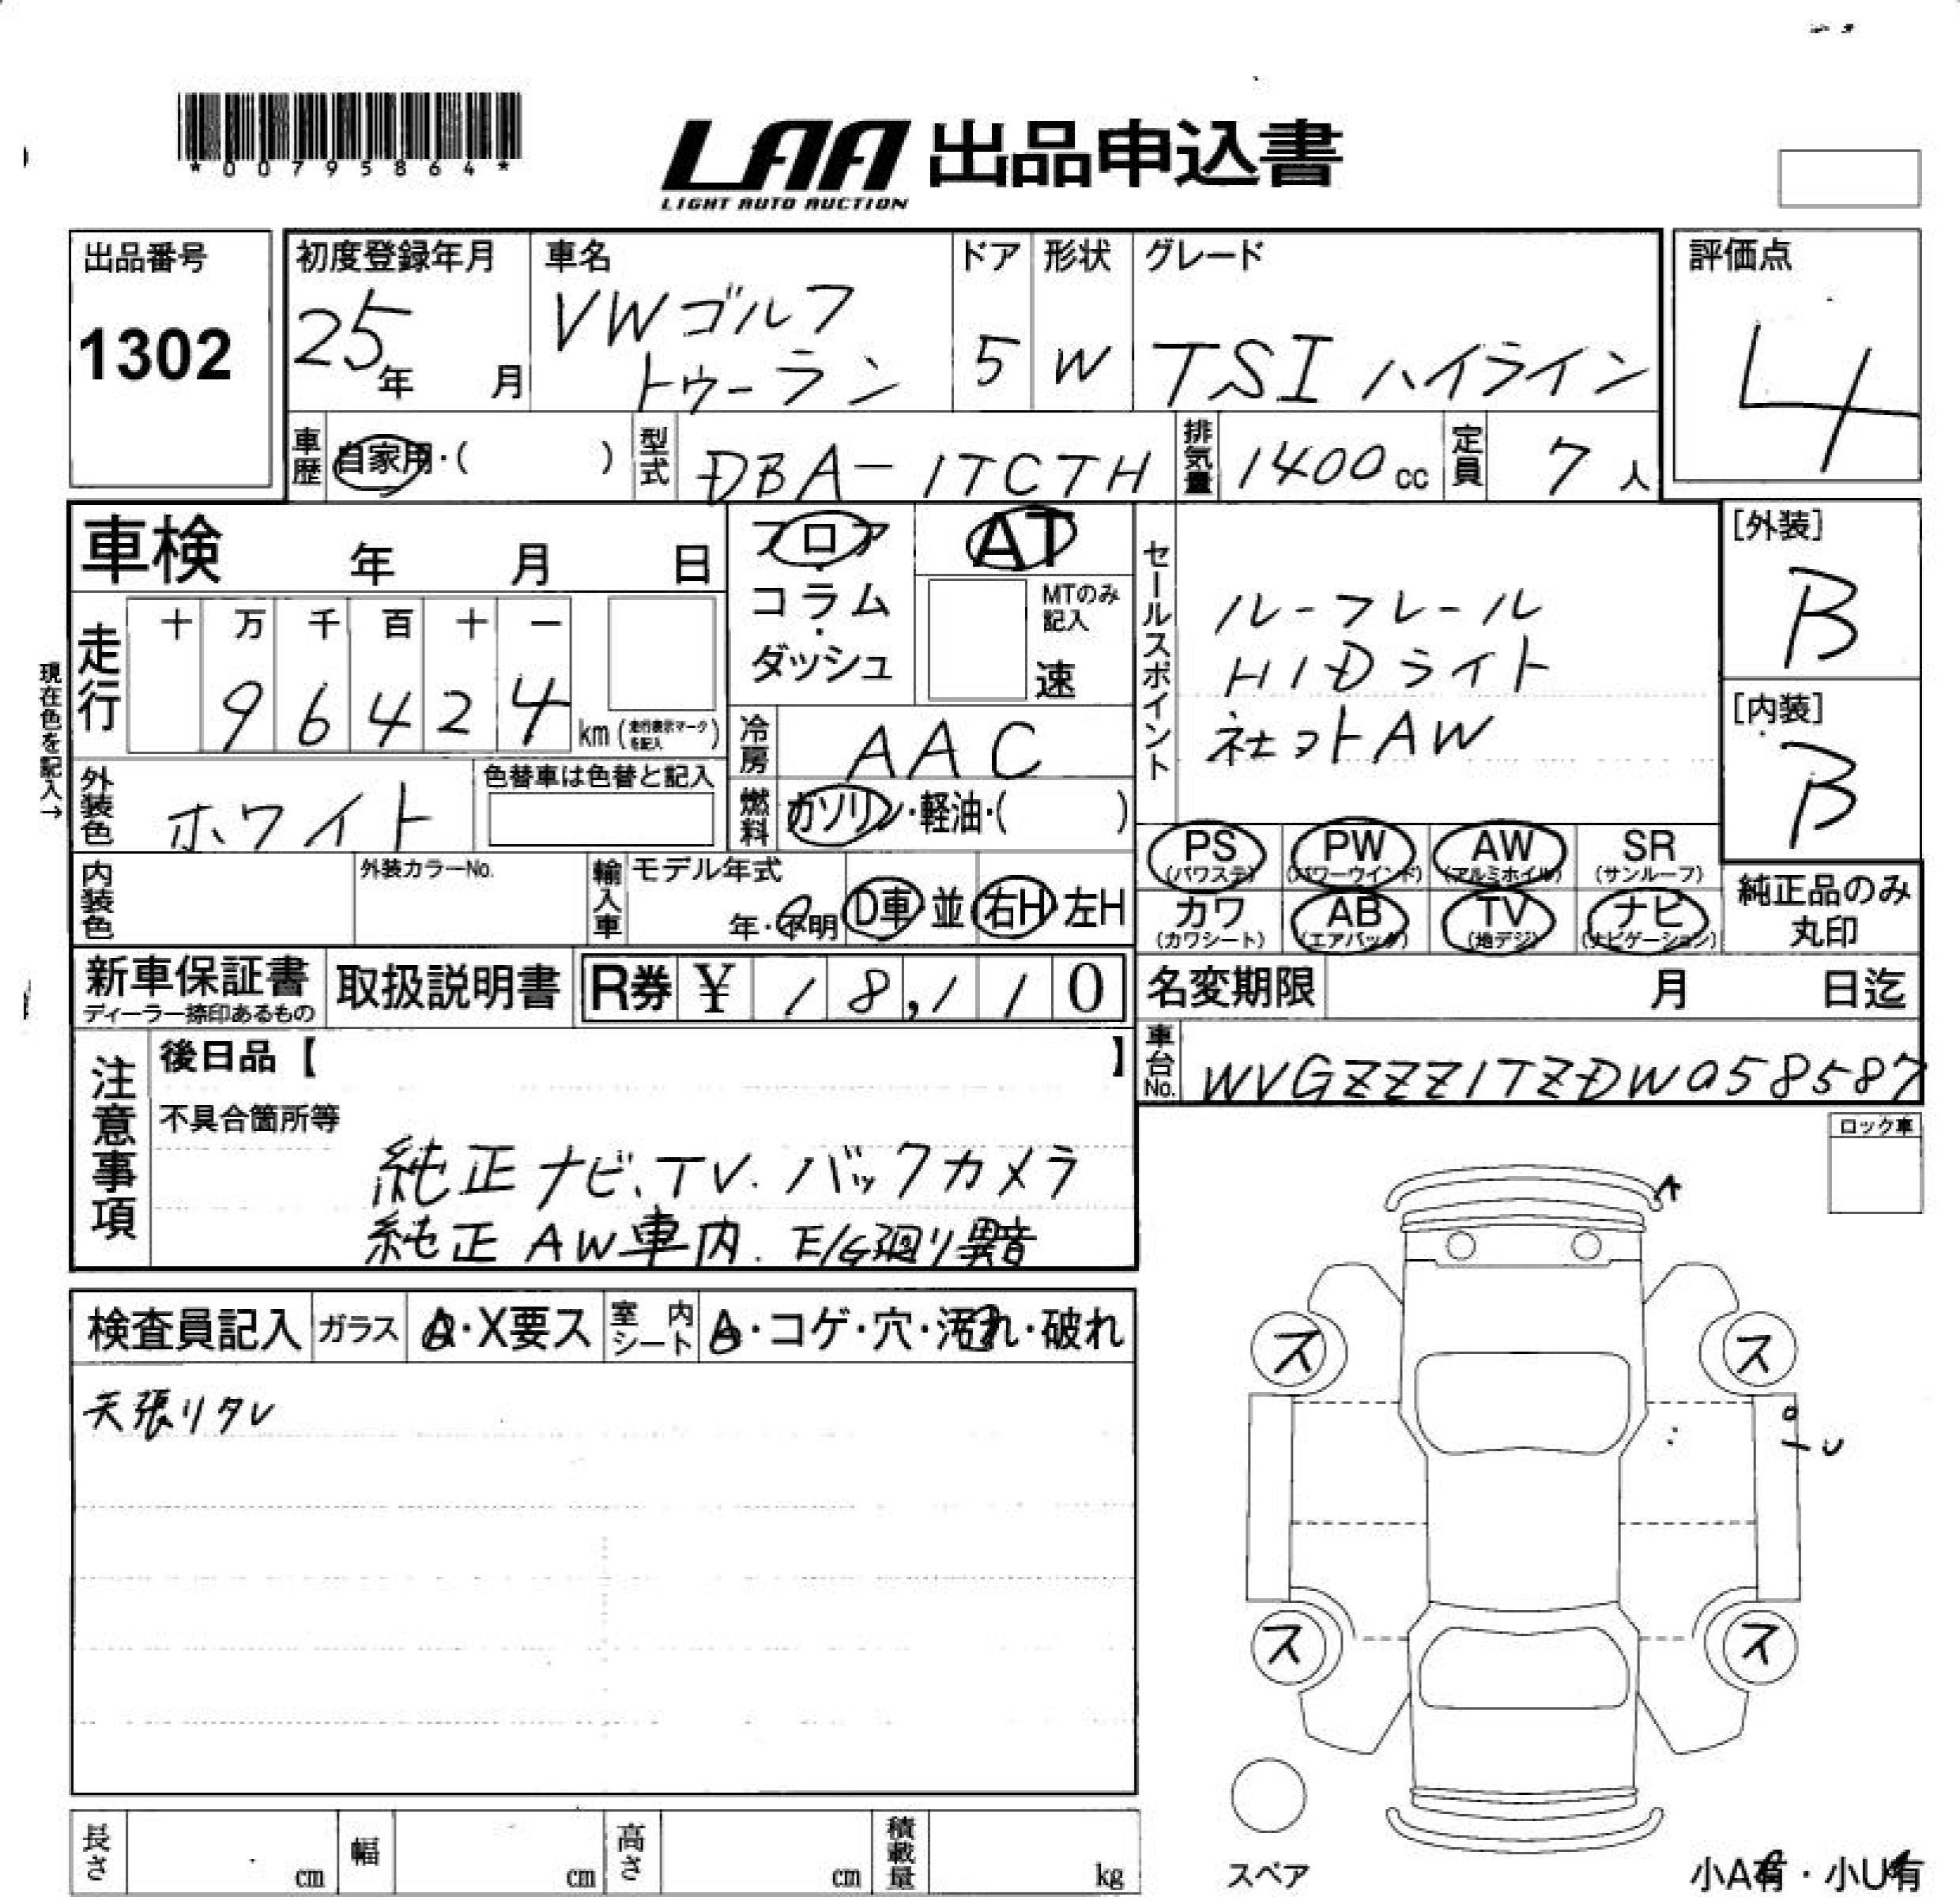 *00795864*
LAA 出品申込書
LIGHT AUTO AUCTION
出品番号
1302
初度登録年月
25年 月
車名
VWゴルフ
トゥーラン
ドア
5
形状
W
グレード
TSI ハイライン
評価点
4
車歴 自家用・( )
型式 DBA-1TCTH
排気量 1400cc
定員 7人
車検 年 月 日
フロア・
コラム・
ダッシュ
AT
MTのみ
記入
速
セールスポイント
ルーフレール
HIDライト
社外AW
[外装]
B
[内装]
B
現在色を記入→
走行
十 万 千 百 十 一
9 6 4 2 4 km (走行表示マークを記入)
冷房 AAC
外装色 ホワイト
色替車は色替と記入
燃料 ガソリン・軽油・( )
PS
(パワステ)
PW
(パワーウインド)
AW
(アルミホイル)
SR
(サンルーフ)
カワ
(カワシート)
AB
(エアバック)
TV
(地デジ)
ナビ
(ナビゲーション)
純正品のみ
丸印
内装色
外装カラーNo.
輸入車
モデル年式
年・不明
D車 並 右H 左H
新車保証書
ディーラー捺印あるもの
取扱説明書
R券 ¥ 18,110
名変期限 月 日迄
車台No. WVGZZZ1TZDW058587
注意事項
後日品【 】
不具合箇所等
純正ナビ、TV.バックカメラ
純正AW車内.E/G廻り異音
ロック車
検査員記入 ガラス A・X要ス 室内シート A・コゲ・穴・汚れ・破れ
天張りタレ
A
ス ス
U
ス ス
スペア
小A有・小U有
長さ cm 幅 cm 高さ cm 積載量 kg